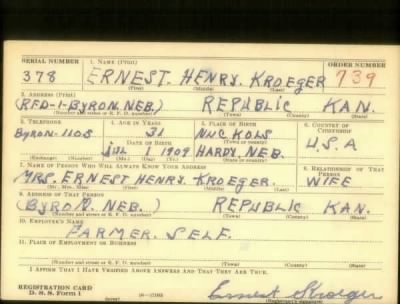 SERIAL NUMBER 1. NAME (Print) ORDER NUMBER
378 ERNEST. HENRY. KROEGER 739
(First) (Middle) (Last)
2. ADDRESS (Print)
(RFD-1-BYRON. NEB.) REPUBLIC KAN.
(Number and street or R. F. D. number) (Town) (County) (State)
3. TELEPHONE 4. AGE IN YEARS 5. PLACE OF BIRTH 6. COUNTRY OF CITIZENSHIP
BYRON-1105 31 NUCKOLS
DATE OF BIRTH (Town or county) U.S.A
JUL 1 1909 HARDY. NEB.
(Exchange) (Number) (Mo.) (Day) (Yr.) (State or country)
7. NAME OF PERSON WHO WILL ALWAYS KNOW YOUR ADDRESS 8. RELATIONSHIP OF THAT PERSON
MRS. ERNEST HENRY. KROEGER. WIFE
(Mr., Mrs., Miss) (First) (Middle) (Last)
9. ADDRESS OF THAT PERSON
(BYRON. NEB.) REPUBLIC KAN.
(Number and street or R. F. D. number) (Town) (County) (State)
10. EMPLOYER'S NAME
FARMER. SELF.
11. PLACE OF EMPLOYMENT OR BUSINESS
(Number and street or R. F. D. number) (Town) (County) (State)
I AFFIRM THAT I HAVE VERIFIED ABOVE ANSWERS AND THAT THEY ARE TRUE.
REGISTRATION CARD
D. S. S. Form 1 Ernest Kroeger
(Registrant's signature)